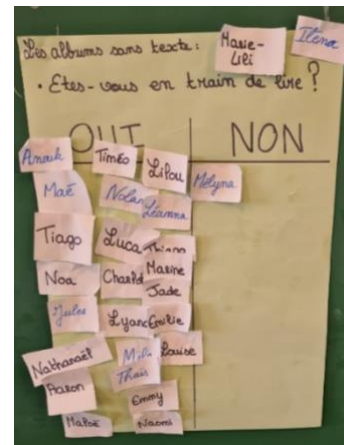 Les albums sans texte :
Marie-
Lili
Ilena
• Etes-vous en train de lire ?
OUI
NON
Anouk
Timéo
Lilou
Mélyna
Maé
Nolan
Léanna
Tiago
Luca
Noa
Charlè
Marine
Jade
Jules
Lyanc
Emilie
Nathanaël
Louise
Thaïs
Aaron
Emmy
Naomi